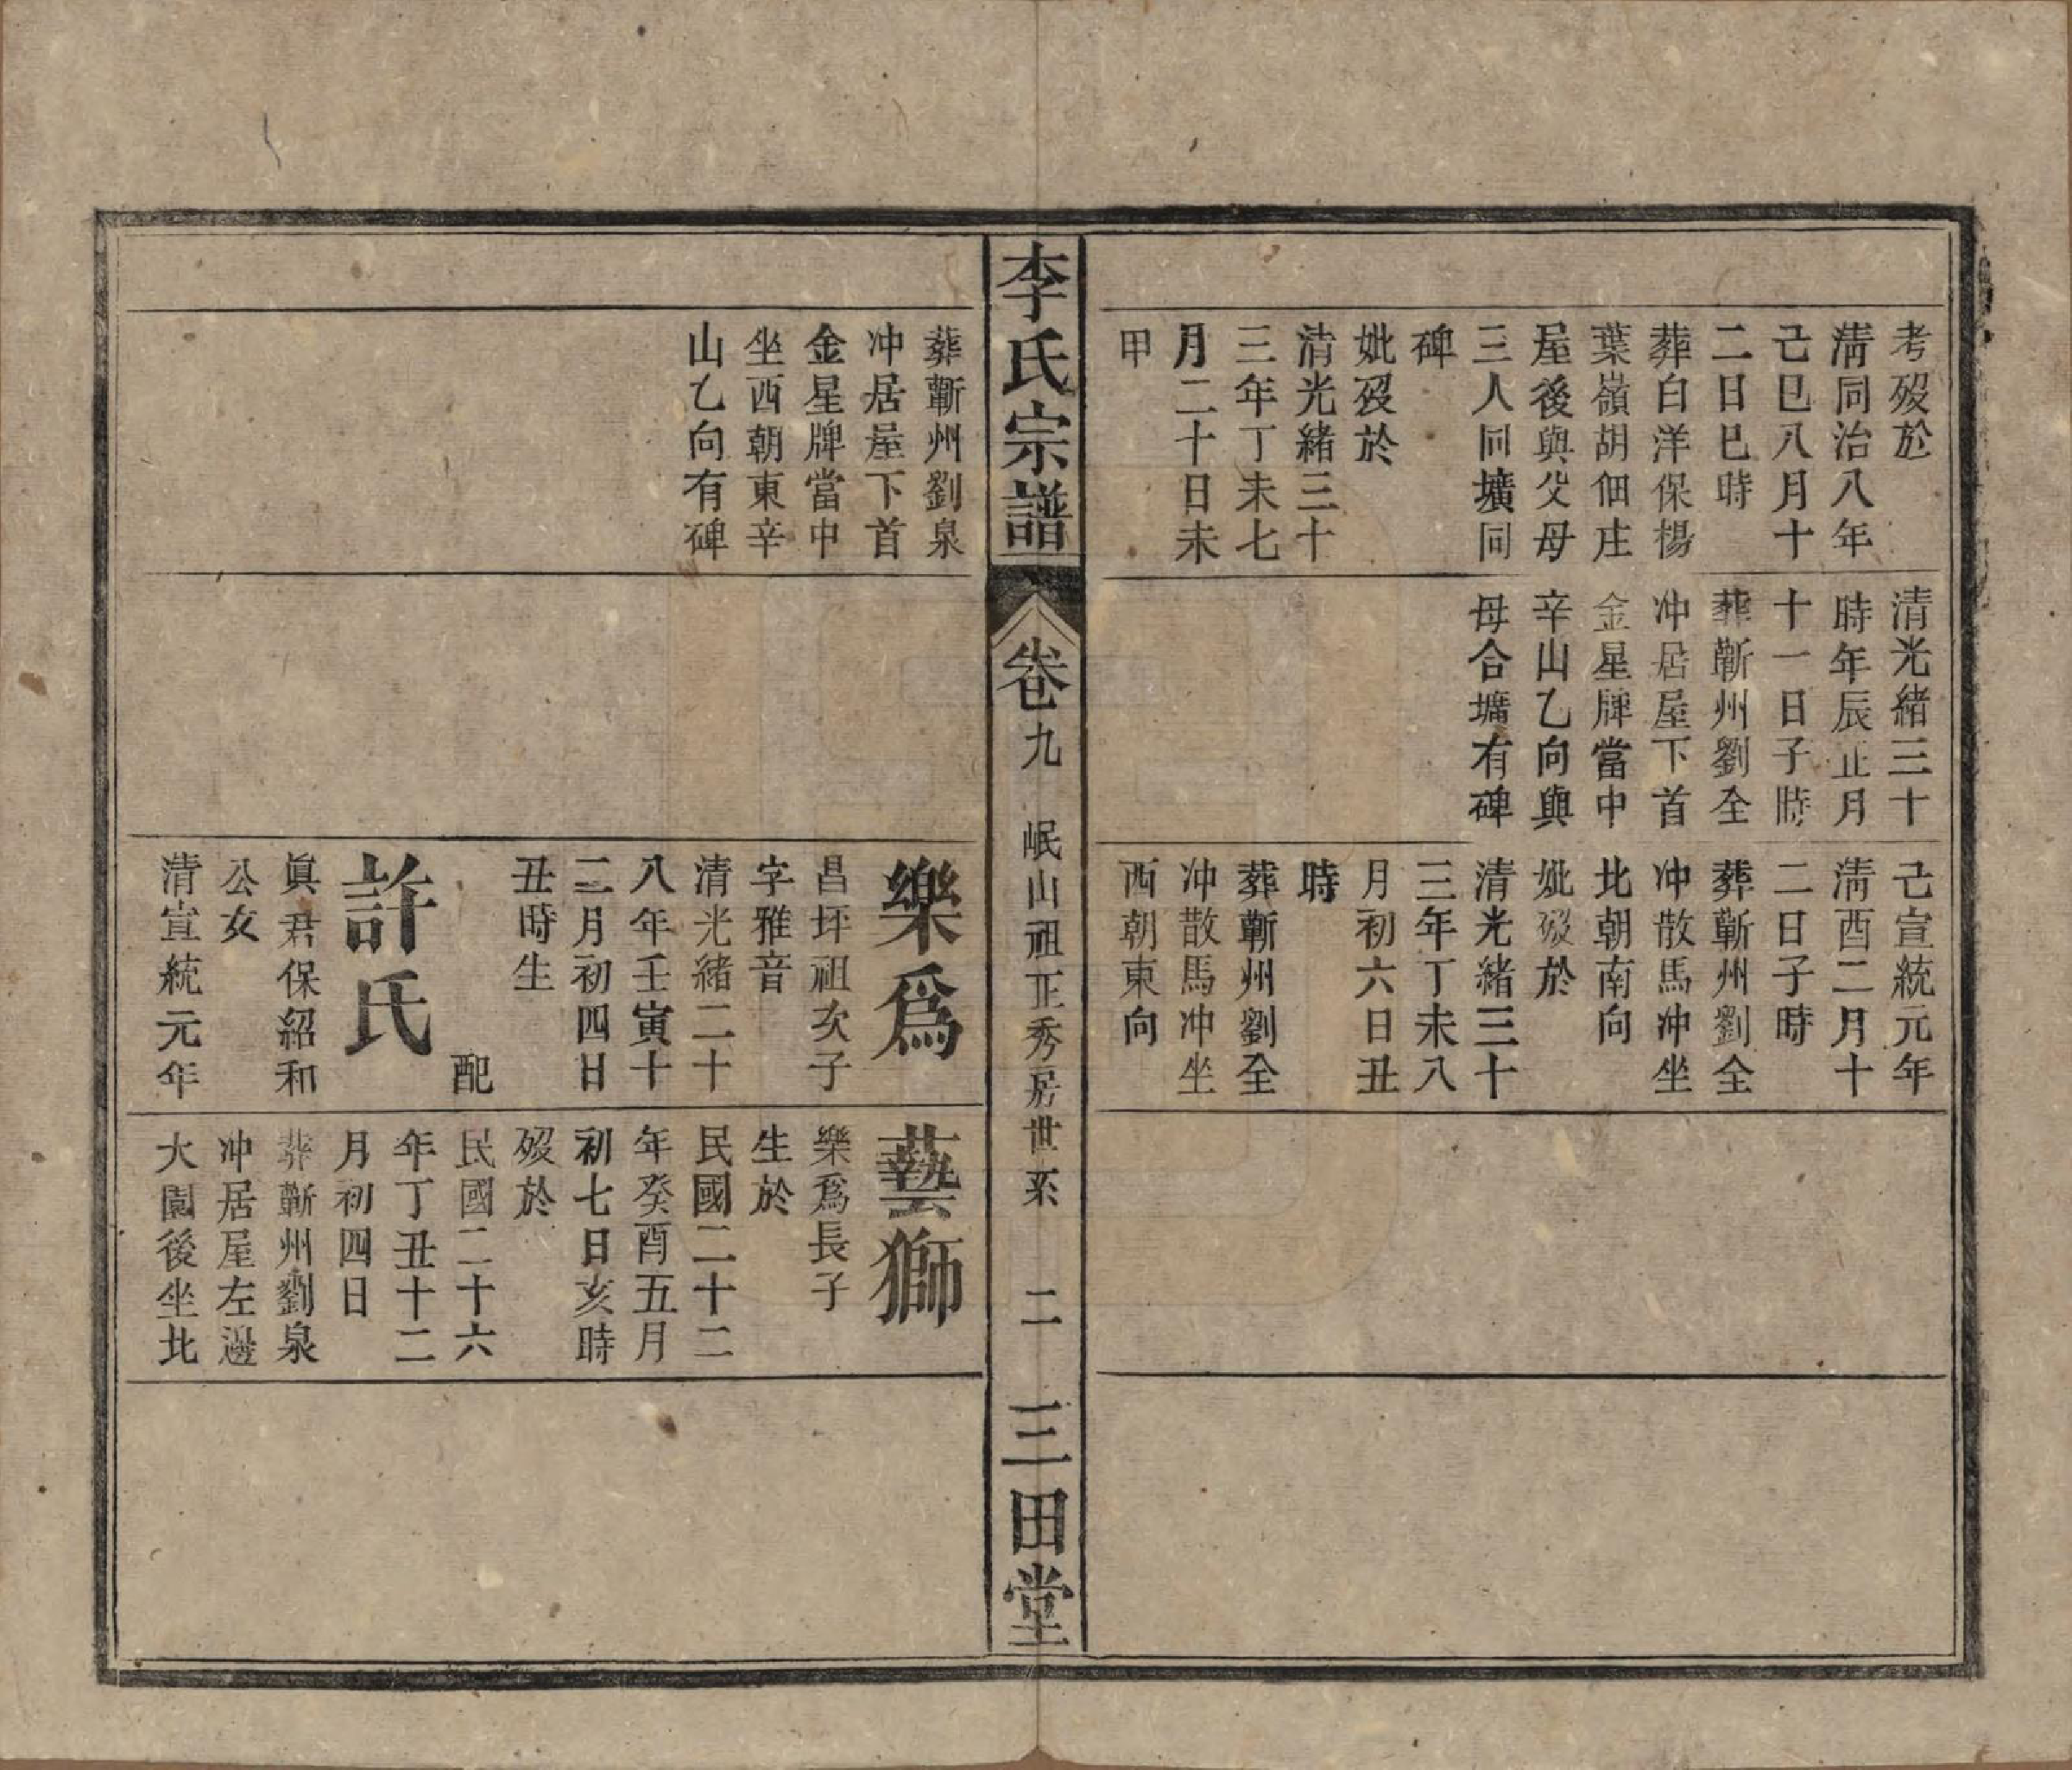 考歿於
淸同治八年
己巳八月十
二日巳時
葬白洋保楊
葉嶺胡佃庄
屋後與父母
三人同壙同
碑
妣歿於
清光緒三十
三年丁未七
月二十日未
甲
清光緒三十
時年辰正月
十一日子時
葬蘄州劉全
冲居屋下首
金星牌當中
辛山乙向與
母合壙有碑
己宣統元年
淸酉二月十
二日子時
葬蘄州劉全
冲散馬冲坐
北朝南向
妣歿於
清光緒三十
三年丁未八
月初六日丑
時
葬蘄州劉全
冲散馬冲坐
西朝東向
李氏宗譜
卷九
岷山祖正秀居世系
二
三田堂
葬蘄州劉泉
冲居屋下首
金星牌當中
坐西朝東辛
山乙向有碑
樂爲
昌坪祖次子
字雅音
清光緒二十
八年壬寅十
二月初四日
丑時生
配
許氏
眞君保紹和
公女
清宣統元年
藝獅
樂爲長子
生於
民國二十二
年癸酉五月
初七日亥時
歿於
民國二十六
年丁丑十二
月初四日
葬蘄州劉泉
冲居屋左邊
大園後坐北